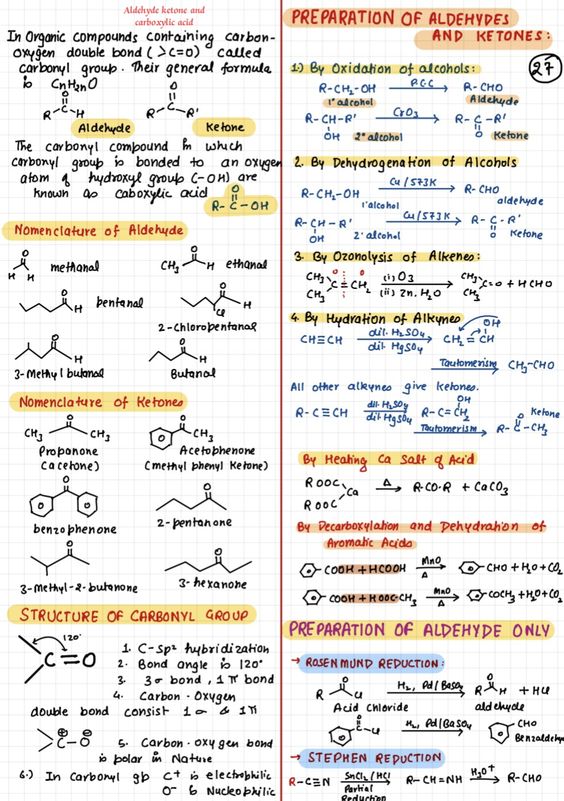 Aldehyde ketone and
carboxylic acid
In Organic compounds containing carbon-
oxygen double bond ( >C=O) called
carbonyl group. Their general formula
is CnH2nO
O
R-C-H
O
R-C-R'
Aldehyde
Ketone
The carbonyl compound in which
carbonyl group is bonded to an oxygen
atom of hydroxyl group (-OH) are
known as caboxylic acid
O
R-C-OH
Nomenclature of Aldehyde
H H O methanal
CH3 O H ethanal
O H pentanal
O H Cl
2-chloropentanal
O H
3-Methyl butanal
O H
Butanal
Nomenclature of Ketones
CH3 O CH3
Propanone
(acetone)
O CH3
Acetophenone
(methyl phenyl Ketone)
O
benzophenone
O
2-pentanone
O
3-Methyl-2-butanone
O
3-hexanone
STRUCTURE OF CARBONYL GROUP
120°
C=O
1. C-Sp² hybridization
2. Bond angle is 120°
3. 3σ bond, 1π bond
4. Carbon-Oxygen
double bond consist 1σ & 1π
>C-O
5. Carbon-oxygen bond
is polar in Nature
6.) In Carbonyl gp C+ is electrophilic
O- is Nucleophilic
PREPARATION OF ALDEHYDES
AND KETONES:
27
1.) By Oxidation of alcohols:
R-CH2-OH P.C.C R-CHO
1° alcohol Aldehyde
R-CH-R' CrO3 R-C-R'
OH O
2° alcohol Ketone
2. By Dehydrogenation of Alcohols
R-CH2-OH Cu/573K R-CHO
1° alcohol aldehyde
R-CH-R' Cu/573K R-C-R'
OH O
2° alcohol Ketone
3. By Ozonolysis of Alkenes:
CH3 CH3 C=CH2 (i) O3 (ii) Zn, H2O CH3 CH3 C=O + HCHO
4. By Hydration of Alkynes
CH≡CH dil. H2SO4 dil. HgSO4 CH2=CH OH
Tautomerism CH3-CHO
All other alkynes give ketones.
R-C≡CH dil. H2SO4 dil. HgSO4 R-C=CH2 OH
Tautomerism R-C-CH3 O Ketone
By Heating Ca Salt of Acid
ROOC ROOC Ca Δ R-CO-R + CaCO3
By Decarboxylation and Dehydration of
Aromatic Acids
COOH + HCOOH MnO Δ CHO + H2O + CO2
COOH + HOOC-CH3 MnO Δ COCH3 + H2O + CO2
PREPARATION OF ALDEHYDE ONLY
→ ROSENMUND REDUCTION:
R O Cl H2, Pd/BaSO4 R O H + HCl
Acid Chloride aldehyde
O C-Cl H2, Pd/BaSO4 CHO
Benzaldehyde
→ STEPHEN REDUCTION
R-C≡N SnCl2/HCl R-CH=NH H3O+ R-CHO
Partial
Reduction